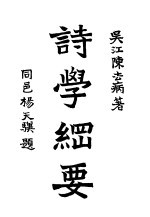 吳江陳去病著
詩學綱要
同邑楊天驥題